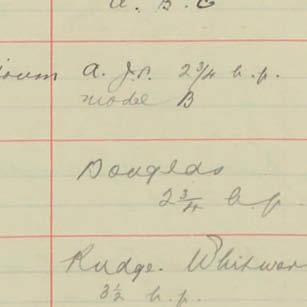 A. B. C
A. J.S. 2 3/4 h.p.
model B
Douglas
2 3/4 h.p.
Rudge. Whitwor
3 1/2 h.p.